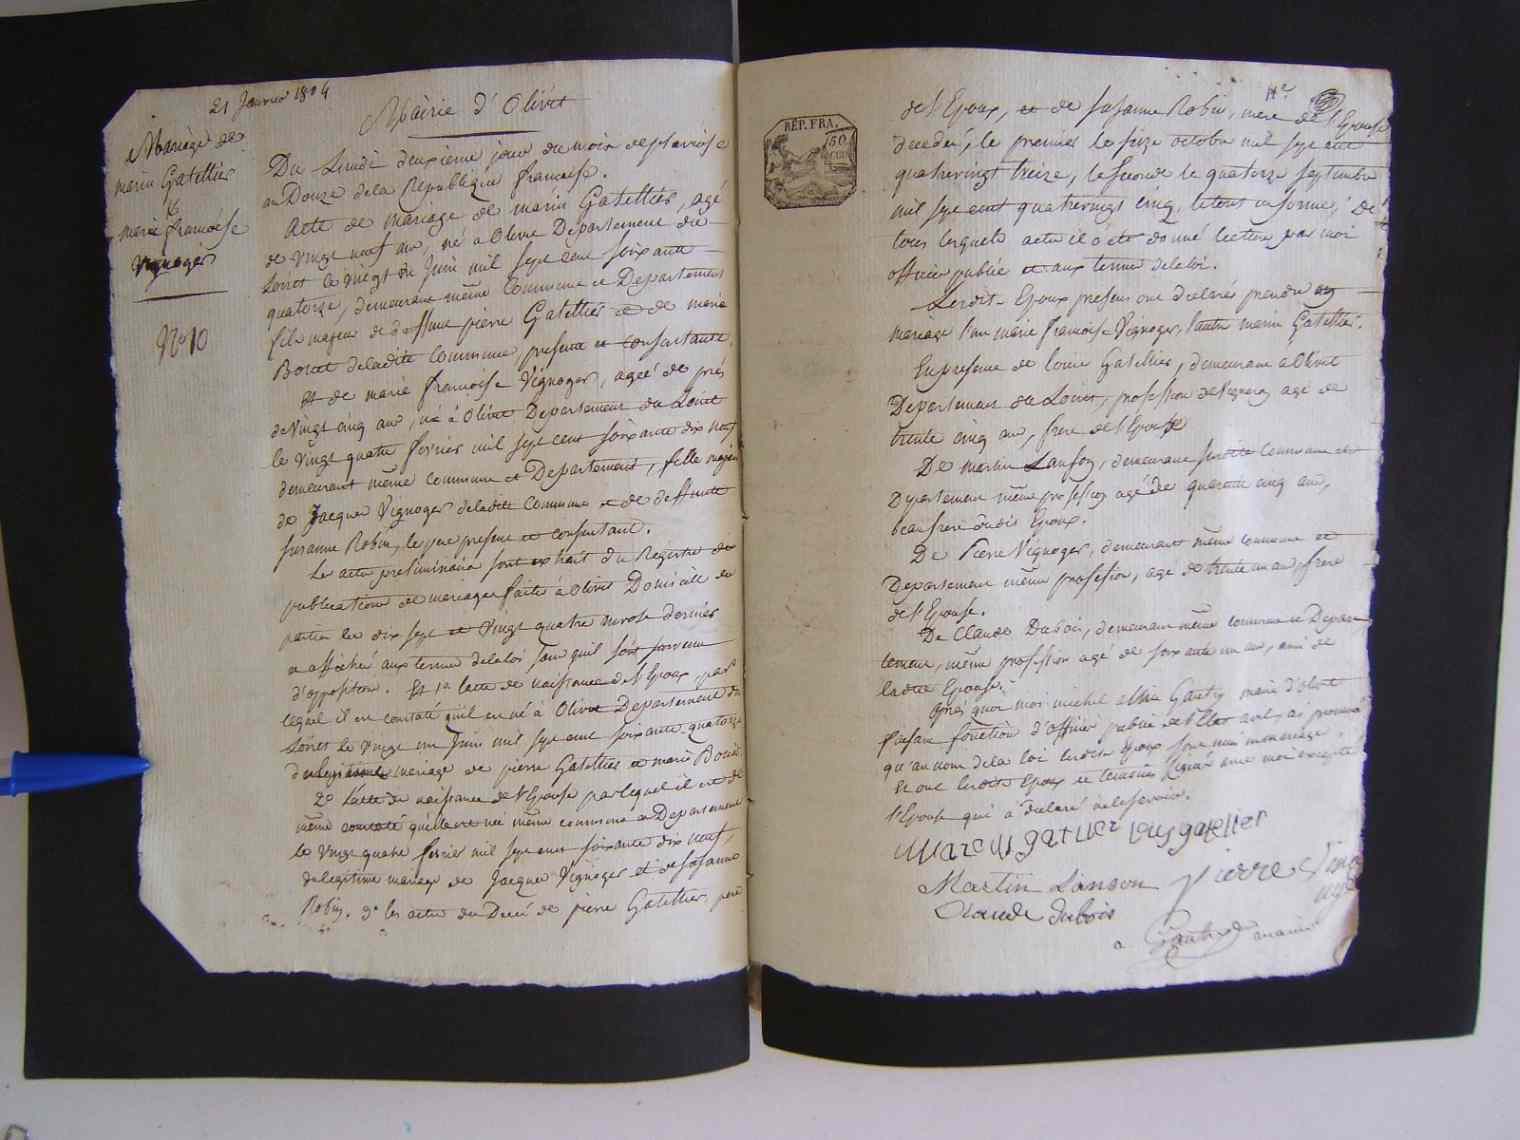 21 Janvier 1804
Mairie d'Olivet
Mariage de
marin Gatellier
&
marie françoise
Vignoger
No 10
Du Lundi deuxieme jour du mois de pluviose
an Douze de la Republique francaise.
Acte de mariage de marin Gatellier, agé
de vingt neuf ans, né a Olivet Departement du
Loiret le vingt un Juin mil sept cent soixante
quatorze, demeurant même Commune et Departement
fils majeur de deffunt pierre Gatellier et de marie
Bouet deladite Commune, presente et consentante.
Et de marie francoise Vignoger, ageé de prés
de Vingt cinq ans, né à Olivet Departement du Loiret
le vingt quatre fevrier mil sept cent soixante dix neuf
demeurant même commune et Departement, fille majeur
de Jacques Vignoger deladite Commune et de deffunte
susanne Robin, le pere present et consentant.
Les actes preliminaires sont extrait du Registre de
publication de mariages faite à Olivet Domicille des
parties les dix sept et vingt quatre nivose dernier
a affiché aux termes delaloi sans quil soit survenu
d'opposition. Et 1o lacte de naissance de l'Epoux, par
lequel il est constaté quil est né à Olivet Departement du
Loiret le vingt un Juin mil sept cent soixante quatorze
du legitime mariage de pierre Gatellier et marie Bouet
2o Lacte de naissance de l'Epouse par lequel il est de
même constaté quelle est né même commune et Departement
le vingt quatre fevrier mil sept cent soixante dix neuf,
du legitime mariage de Jacques Vignoger et de susanne
Robin. 3o les actes de Decé de pierre Gatellier, pere
REP. FRA.
50
CEN
de l'Epoux, et de susanne Robin, mere de l'Epouse
decedés, le premier le seize octobre mil sept cent
quatrevingt treize, le second le quatorze septembre
mil sept cent quatrevingt cinq, le tout en forme, De
tous lesquels actes il a été donné lecture par moi
officier public et aux termes delaloi.
Lesdits Epoux presens ont declarés prendre en
mariage l'un marie francoise Vignoger, l'autre marin Gatellier.
En presence de louis Gatellier, demeurant a Olivet
Departement du Loiret, profession de Vigneron agé de
trente cinq ans, frere de l'Epoux
De martin Lanson, demeurant susdite Commune et
Departement même profession agé de quarante cinq ans,
beau frere dudit Epoux.
De Pierre Vignoger, demeurant même commune et
Departement même profession, agé de trente un ans, frere
de l'Epouse.
De Claude Dubois, demeurant même commune et Depar
tement, même profession agé de soixante un ans, ami de
ladite Epouse.
Après quoi moi michel Gautry maire d'olivet
faisant fonction d'officier public de l'Etat civil, ai prononcé
qu'au nom dela loi lesdits Epoux sont unis en mariage.
Et ont lesdits Epoux et temoins signés avec moi excepté
l'Epouse qui a declaré ne le savoir.
Marein gatellier louis gatellier
Martin Lanson Pierre Vino
Claude dubois
Gautry maire